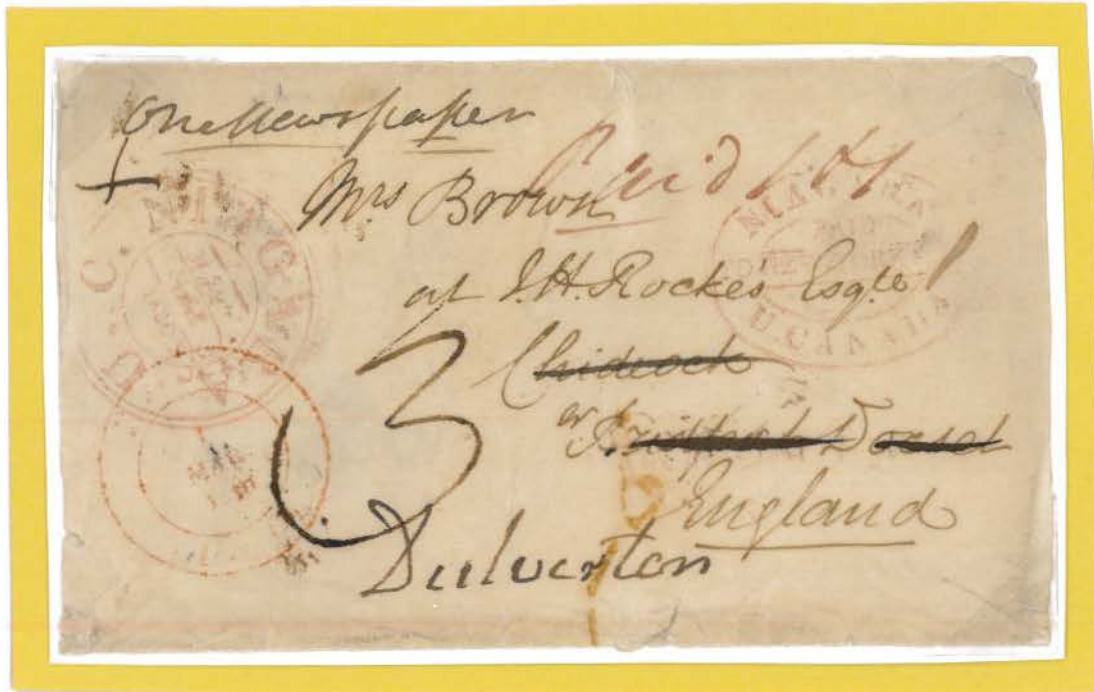 One Newspaper
Paid 1/4
Mrs Brown
at J. H. Rockes' Esqre
Chideock
nr Bridport Dorset
England
3
Dulverton
U.C. NIAGARA
NIAGARA
PAID
U. CANADA
MAR